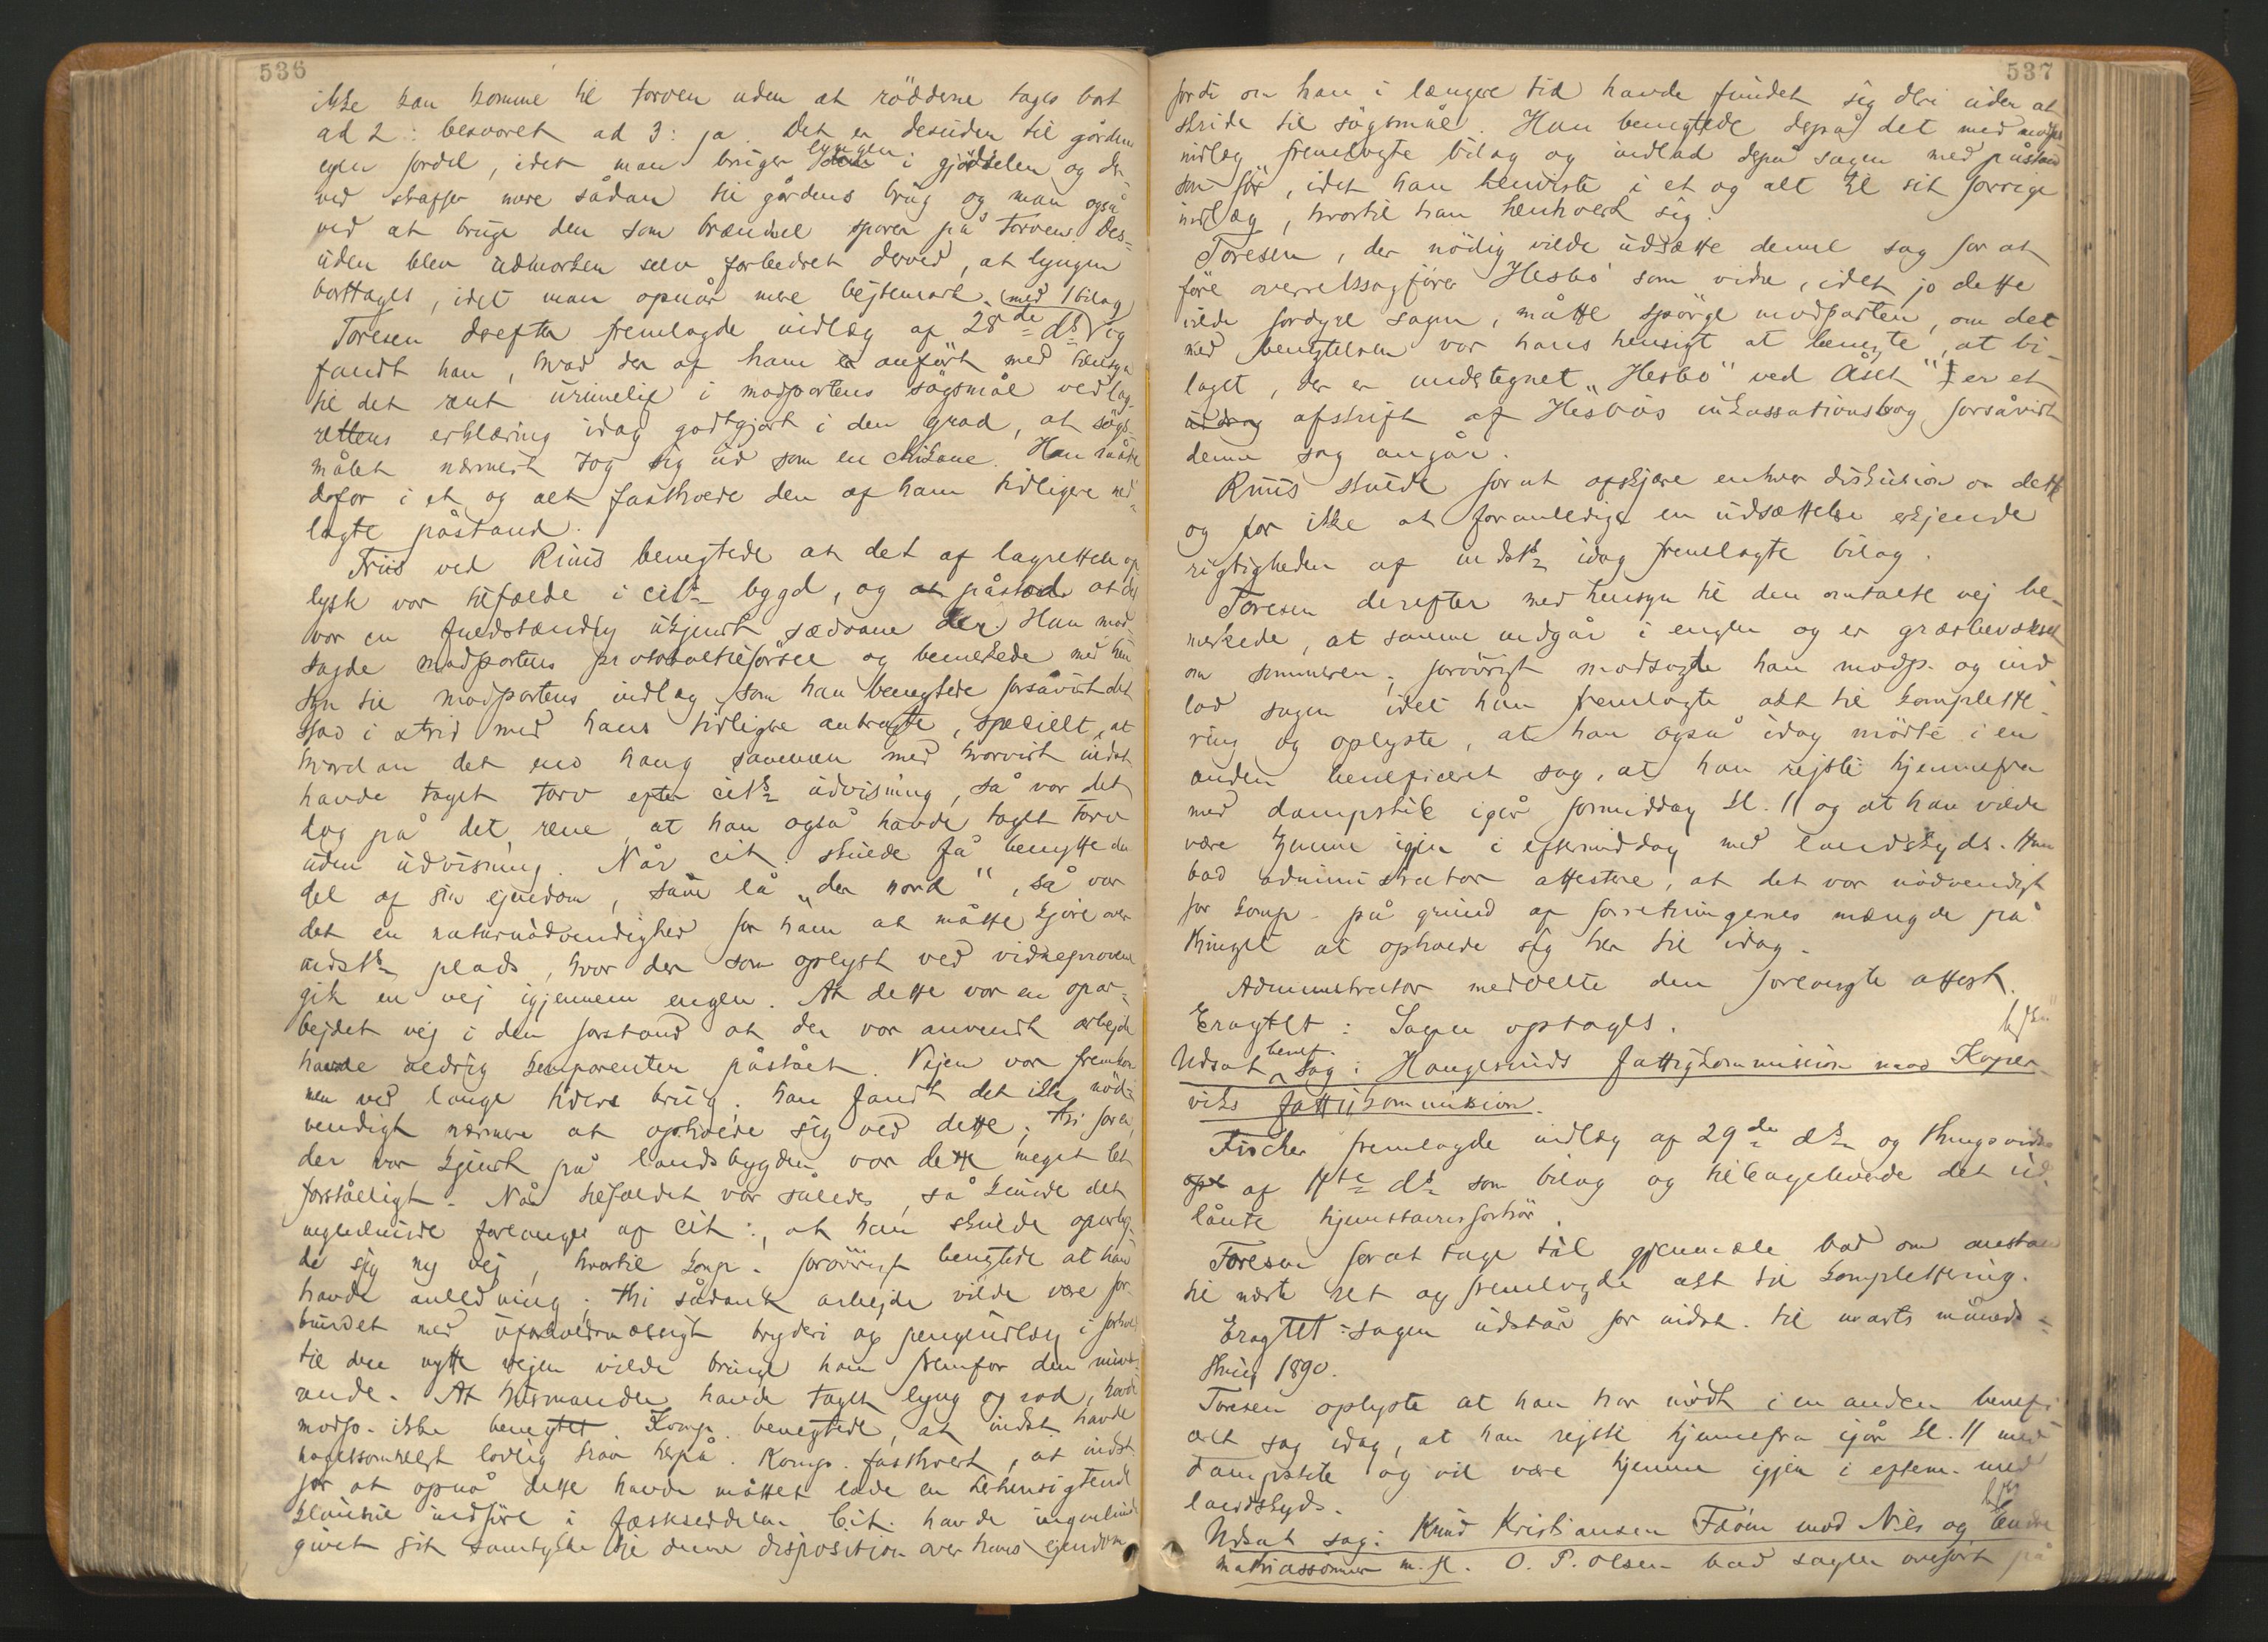 536
ikke kan komme til torven uden at rödderne tages bort
ad 2: besvaret ad 3: ja. Det er desuden til gårdens
egen fordel, idet man bruger lyngen i gjödselen og der-
ved skaffer mere sådan til gårdens brug og man også
ved at bruge den som brændsel sparer på torven. Des-
uden blev udmarken selv forbedret derved, at lyngen
borttages, idet man opnår mere bejtemark. (med 1 bilag
Toresen derefter fremlagde indlæg af 28de ds og
fandt han, hvad der af ham er anført med hensyn
til det rent urimelige i modpartens sögsmål ved lag-
rettens erklæring idag godtgjort i den grad, at sögs-
målet nærmest tog sig ud som en chikane. Han måtte
derfor i et og alt fastholde den af ham tidligere ned-
lagte påstand.
Friis ved Riis benegtede at det af lagretten op-
lyst var tilfælde i cits bygd, og påstod at det
var en fuldstændig ukjendt sædvane der. Han mod-
sagde modpartens protokoltilförsel og bemerkede med hen-
syn til modpartens indlæg som han benegtede forsåvidt det
stod i strid med hans tidligere anbragte, specielt, at
hvordan det end hang sammen med hvorvidt indst.
havde taget torv efter cits udvisning, så var det
dog på det rene, at han også havde taget torv
uden udvisning. Når cit. skulde få benytte den
del af sin ejendom, som lå "der nord", så var
det en naturnödvendighed for ham at måtte kjöre over
indsts plads, hvor der som oplyst ved vidneprovene
gik en vej igjennem engen. At dette var en opar-
bejdet vej i den forstand at der var anvendt arbejde
havde aldrig komparenten påstået. Vejen var fremkom-
men ved lange tiders brug. han fandt det ikke nöd-
vendigt nærmere at opholde sig ved dette; thi for en,
der var kjendt på landsbygden var dette meget let
forståeligt. Når tilfældet var således, så kunde det
ingenlunde forlanges af cit:, at han skulde oparbej-
de sig ny vej, hvortil komp. forövrigt benegtede at han
havde anledning; thi sådant arbejde vilde være for-
bundet med uforholdsmæssigt bryderi og pengeudlæg i forhold
til den nytte vejen vilde bringe ham fremfor den nuvæ-
rende. At husmanden havde taget lyng og rod, havde
modp. ikke benegtet. Komp. benegtede, at indst. havde
nogetsomhelst lovlig krav herpå. Komp. fastholdt, at indst.
for at opnå dette havde måttet lade en dertil sigtende
klausul indföre i fæsteseddelen. Cit. havde ingenlunde
givet sit samtykke til denne disposition over hans ejendom
537
fordi om han i længere tid havde fundet sig deri uden at
skride til sögsmål. Han benegtede derpå det med modps
indlæg fremlagte bilag og indlod derpå sagen med påstand
som för, idet han henviste i et og alt til sit forrige
indlæg, hvortil han henholdt sig.
Toresen, der nödig vilde udsætte denne sag for at
före overretssagförer Hesbö som vidne, idet jo dette
vilde fordyre sagen, måtte spörge modparten, om det
med benegtelsen var hans hensigt at benegte, at bi-
laget, der er undertegnet "Hesbö" ved Åset" er et
afskrift af Hesbös inkassationsbog forsåvidt
denne sag angår.
Riis skulde for at afskjære enhver diskusion om dette
og for ikke at foranledige en udsættelse erkjende
rigtigheden af indsts idag fremlagte bilag.
Toresen derefter med hensyn til den omtalte vej be-
merkede, at samme indgår i engen og er græsbevokset
om sommeren, forövrigt modsagde han modp. og ind-
lod sagen idet han fremlagte akt til komplette-
ring og oplyste, at han også idag mödte i en
anden beneficeret sag, at han rejste hjemmefra
med dampskib igår formiddag kl. 11 og at han vilde
være hjemme igjen i eftermiddag med landskyds. Han
bad administrator attestere, at det var nödvendigt
for komp. på grund af forretningernes mængde på
thinget at opholde sig her til idag.
Administrator meddelte den forlangte attest.
Eragtet: Sagen optages.
Udsat benef. sag: Haugesunds fattigkommision mod Koper-
viks fattigkommision.
Fischer fremlagde indlæg af 29de ds og thingsvidne
af 1ste ds som bilag og tilbageleverede det ud-
lånte hjemstavnsforhör.
Toresen for at tage til gjenmæle bad om anstand
til næste ret og fremlagde akt til komplettering.
Eragtet: sagen udstår for indst. til marts måneds-
thing 1890.
Toresen oplyste at han har mödt i en anden benefi-
ceret sag idag, at han rejste hjemmefra igår kl. 11 med
dampskib og vil være hjemme igjen i efterm. med
landskyds.
Udsat sag: Knud Kristiansen Fröim mod Nils og Endre
Mathiassönner m. fl. O. P. Olsen bad sagen overfört på